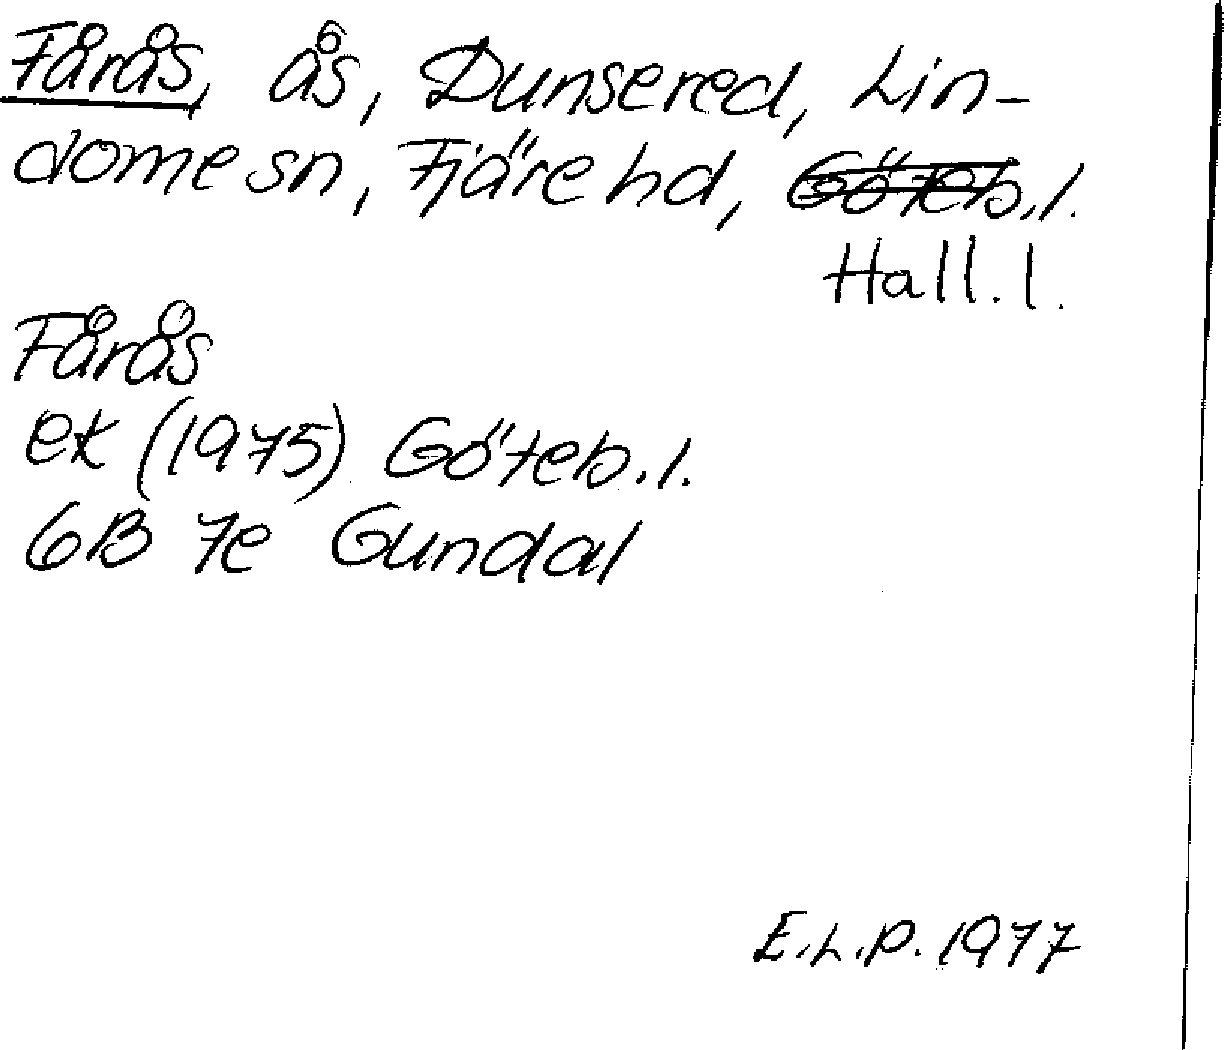 Fårås, ås, Dunsered, Lin-
dome sn, Fjäre hd, Göteb.l.
Hall.l.
Fårås
ek (1975) Göteb.l.
6B 7e Gundal
E.L.P. 1977